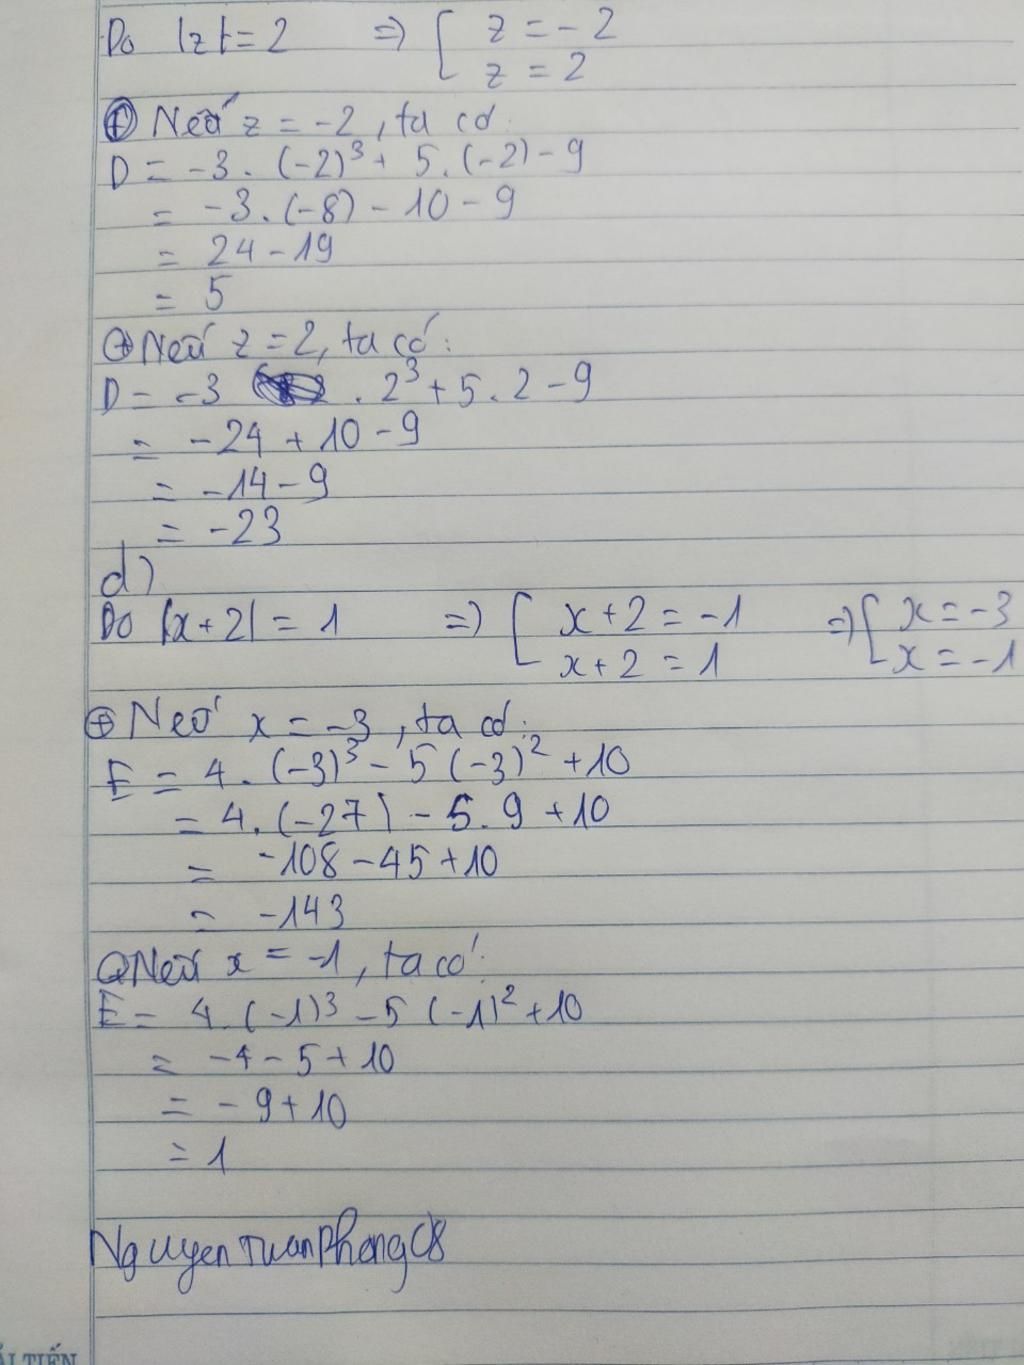 Do |z| = 2 => [ z = -2
z = 2
⊕ Nếu z = -2, ta có:
D = -3 . (-2)³ + 5 . (-2) - 9
= -3 . (-8) - 10 - 9
= 24 - 19
= 5
⊕ Nếu z = 2, ta có:
D = -3 . 2³ + 5 . 2 - 9
= -24 + 10 - 9
= -14 - 9
= -23
d)
Do |x + 2| = 1 => [ x + 2 = -1 => [ x = -3
x + 2 = 1 x = -1
⊕ Nếu x = -3, ta có:
E = 4 . (-3)³ - 5 (-3)² + 10
= 4 . (-27) - 5 . 9 + 10
= -108 - 45 + 10
= -143
⊕ Nếu x = -1, ta có:
E = 4 . (-1)³ - 5 (-1)² + 10
= -4 - 5 + 10
= -9 + 10
= 1
NguyenTuanPhong08
ẢI TIẾN